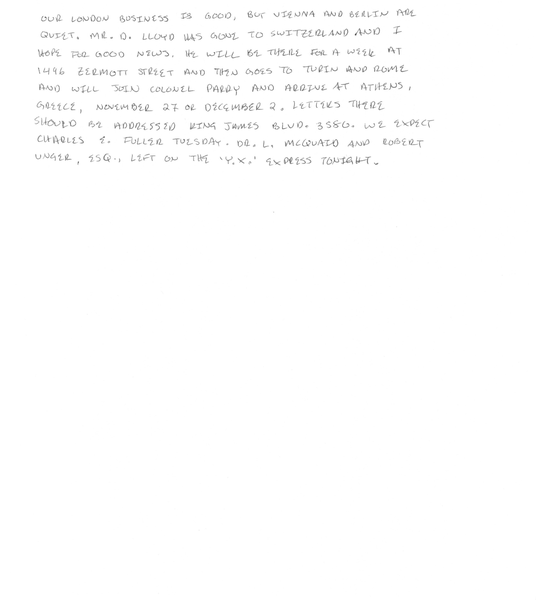 OUR LONDON BUSINESS IS GOOD, BUT VIENNA AND BERLIN ARE
QUIET. MR. D. LLOYD HAS GONE TO SWITZERLAND AND I
HOPE FOR GOOD NEWS. HE WILL BE THERE FOR A WEEK AT
1496 ZERMOTT STREET AND THEN GOES TO TURIN AND ROME
AND WILL JOIN COLONEL PARRY AND ARRIVE AT ATHENS,
GREECE, NOVEMBER 27 OR DECEMBER 2. LETTERS THERE
SHOULD BE ADDRESSED KING JAMES BLVD. 3580. WE EXPECT
CHARLES E. FULLER TUESDAY. DR. L. MCQUAID AND ROBERT
UNGER, ESQ., LEFT ON THE 'Y.X.' EXPRESS TONIGHT.